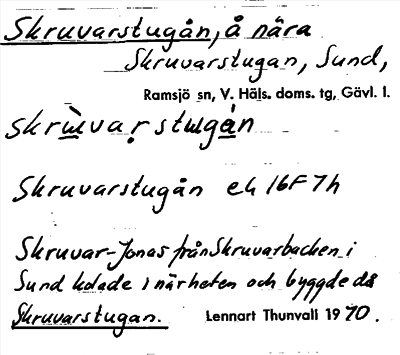 Skruvarstugån, å nära
Skruvarstugan, Sund,
Ramsjö sn, V. Häls. doms. tg, Gävl. l.
skrùvaṛstugån
Skruvarstugån ek 16F7h
Skruvar-Jonas från Skruvarbacken i
Sund kolade i närheten och byggde då
Skruvarstugan. Lennart Thunvall 1970.